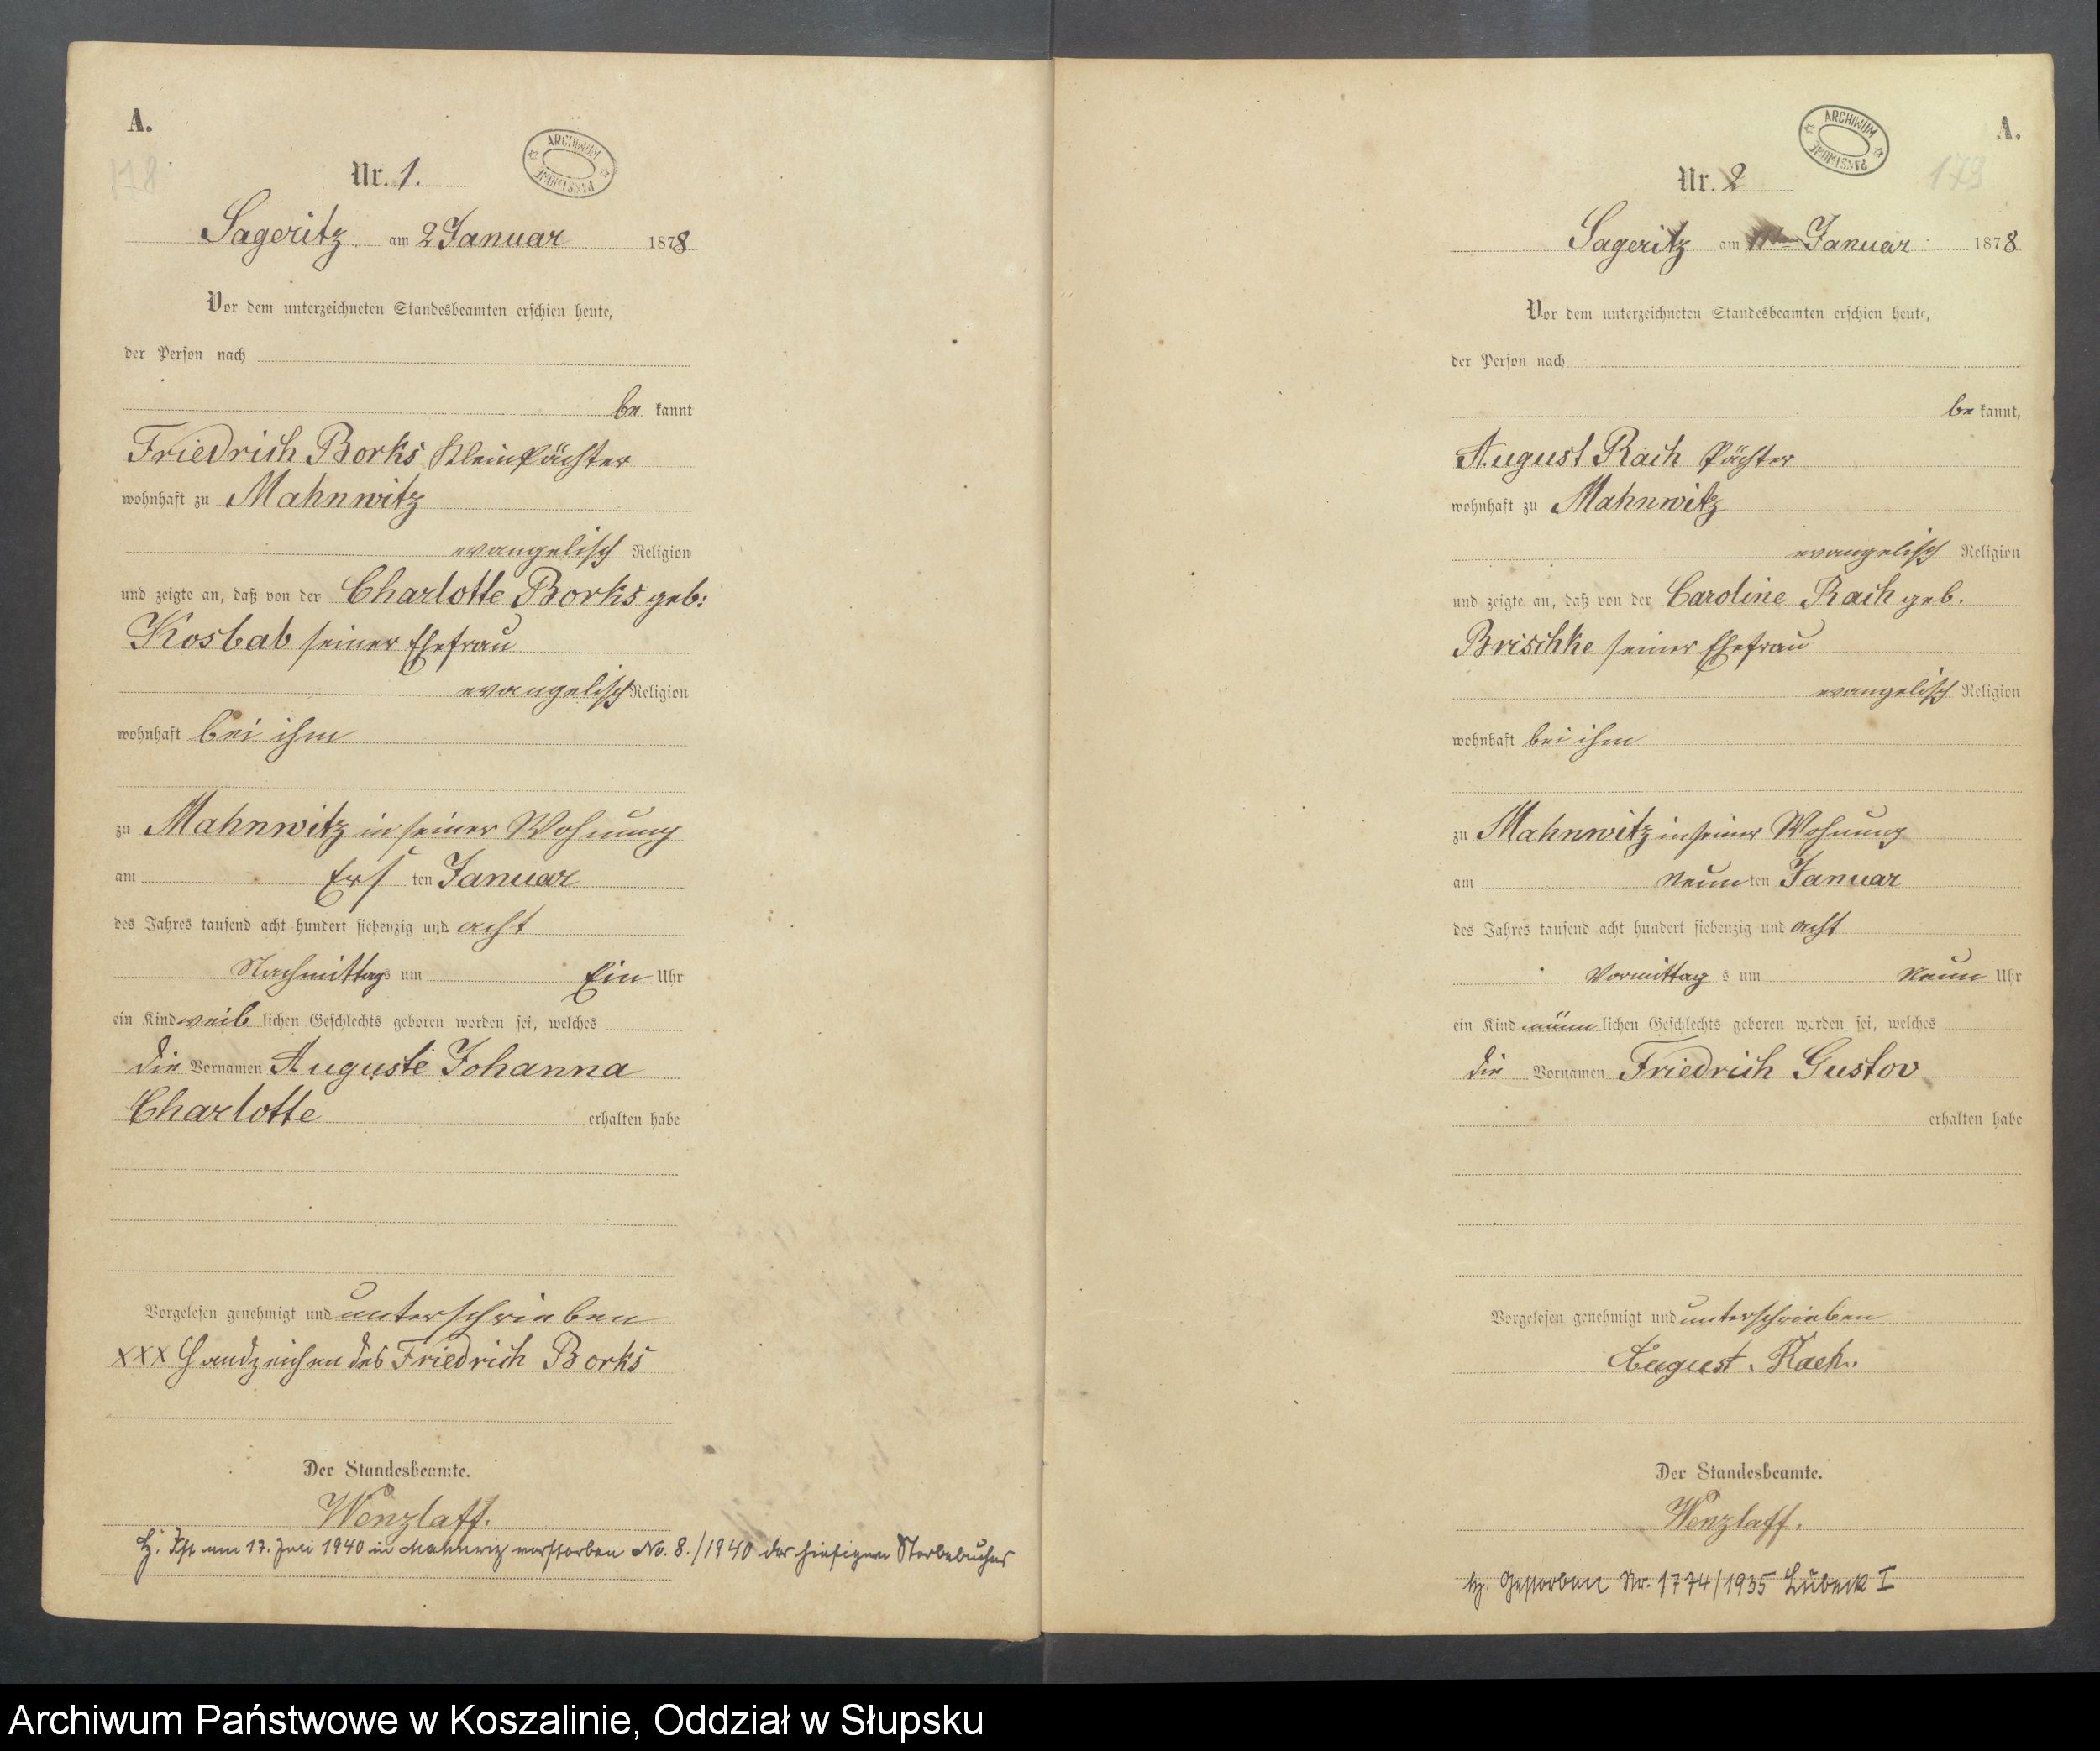 A.
178
Nr. 1.
ARCHIWUM PAŃSTWOWE
Sageritz am 2 Januar 1878
Vor dem unterzeichneten Standesbeamten erschien heute,
der Person nach
be kannt
Friedrich Borks Kleinpächter
wohnhaft zu Mahnwitz
evangelisch Religion
und zeigte an, daß von der Charlotte Borks geb:
Kosbab seiner Ehefrau
evangelisch Religion
wohnhaft bei ihm
zu Mahnwitz in seiner Wohnung
am Ers ten Januar
des Jahres tausend acht hundert siebenzig und acht
Nachmittags um Ein Uhr
ein Kind weib lichen Geschlechts geboren worden sei, welches
die Vornamen Auguste Johanna
Charlotte erhalten habe
Vorgelesen genehmigt und unterschrieben
XXX Handzeichen des Friedrich Borks
Der Standesbeamte.
Wenzlaff.
am 17. Juli 1940 in Mahnwiz verstorben No. 8./1940 des hiesigen Sterbebuches
A.
179
Nr. 2
ARCHIWUM PAŃSTWOWE
Sageritz am Januar 1878
Vor dem unterzeichneten Standesbeamten erschien heute,
der Person nach
be kannt,
August Rach Pächter
wohnhaft zu Mahnwitz
evangelisch Religion
und zeigte an, daß von der Caroline Rach geb.
Brischke seiner Ehefrau
evangelisch Religion
wohnhaft bei ihm
zu Mahnwitz in seiner Wohnung
am neun ten Januar
des Jahres tausend acht hundert siebenzig und acht
Vormittag s um Neun Uhr
ein Kind männ lichen Geschlechts geboren worden sei, welches
die Vornamen Friedrich Gustav
erhalten habe
Vorgelesen genehmigt und unterschrieben
August Rach.
Der Standesbeamte.
Wenzlaff.
Gestorben Nr. 1774/1935 Lübeck I
Archiwum Państwowe w Koszalinie, Oddział w Słupsku